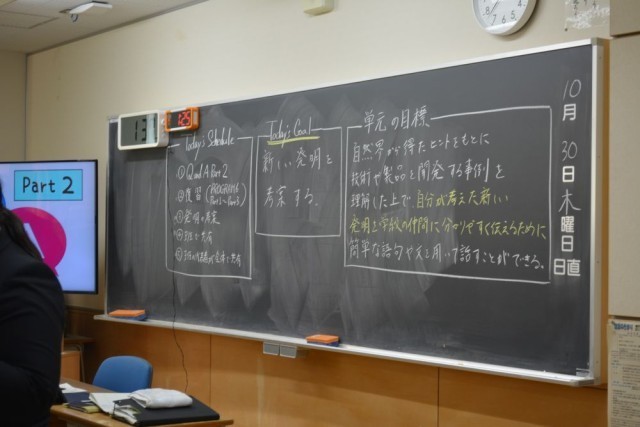 Part 2
13
Today's Schedule
① Q and A Part 2
② 復習 (PROGRAM
③ 発明の考案
④ 班で共有
Today's Goal
新しい発明を
考案する。
単元の目標
自然界から得たヒントをもとに
技術や製品を開発する事例を
理解した上で自分が考えた新しい
発明を学級の仲間に分かりやすく伝えるために
簡単な語句や文を用いて話すことができる。
10月30日木曜日
日直